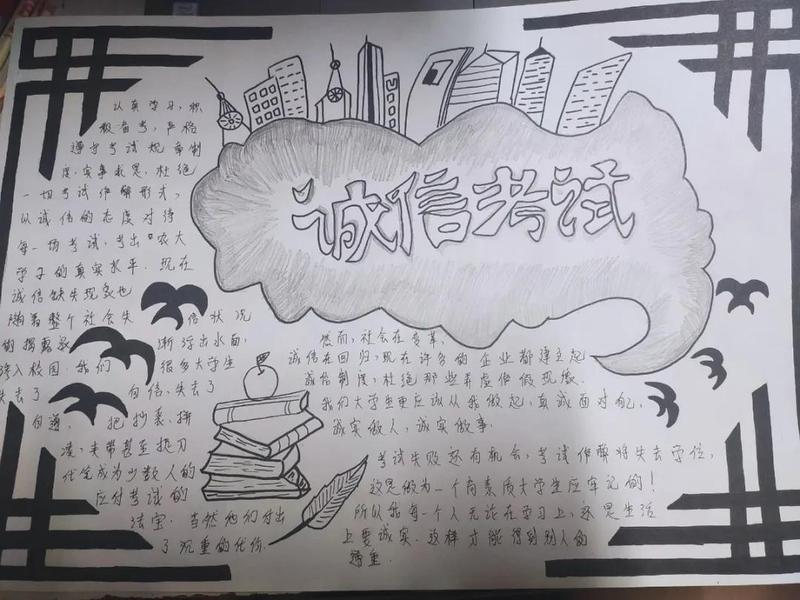 诚信考试
认真学习，积
极备考，严格
遵守考试规章制
度，实事求是，杜绝
一切考试作弊形式，
以诚信的态度对待
每一场考试，考出"农大
学子的真实水平．现在
诚信缺失现象也
随着整个社会失信状况
的揭露逐渐浮出水面，
渗入校园．我们很多大学生
失去了自信，失去了
自尊．把抄袭、拼
凑、夹带甚至捉刀
代笔成为少数人的
应付考试的
法宝．当然他们付出
了沉重的代价．
然而，社会在变革，
诚信在回归，现在许多的企业都建立起
诚信制度，杜绝那些弄虚作假现象．
我们大学生更应该从我做起，真诚面对自己，
诚实做人，诚实做事．
考试失败还有机会，考试作弊将失去学位，
这是做为一个高素质大学生应牢记的！
所以我每一个人无论在学习上，还是生活
上要诚实．这样才能得到别人的
尊重．